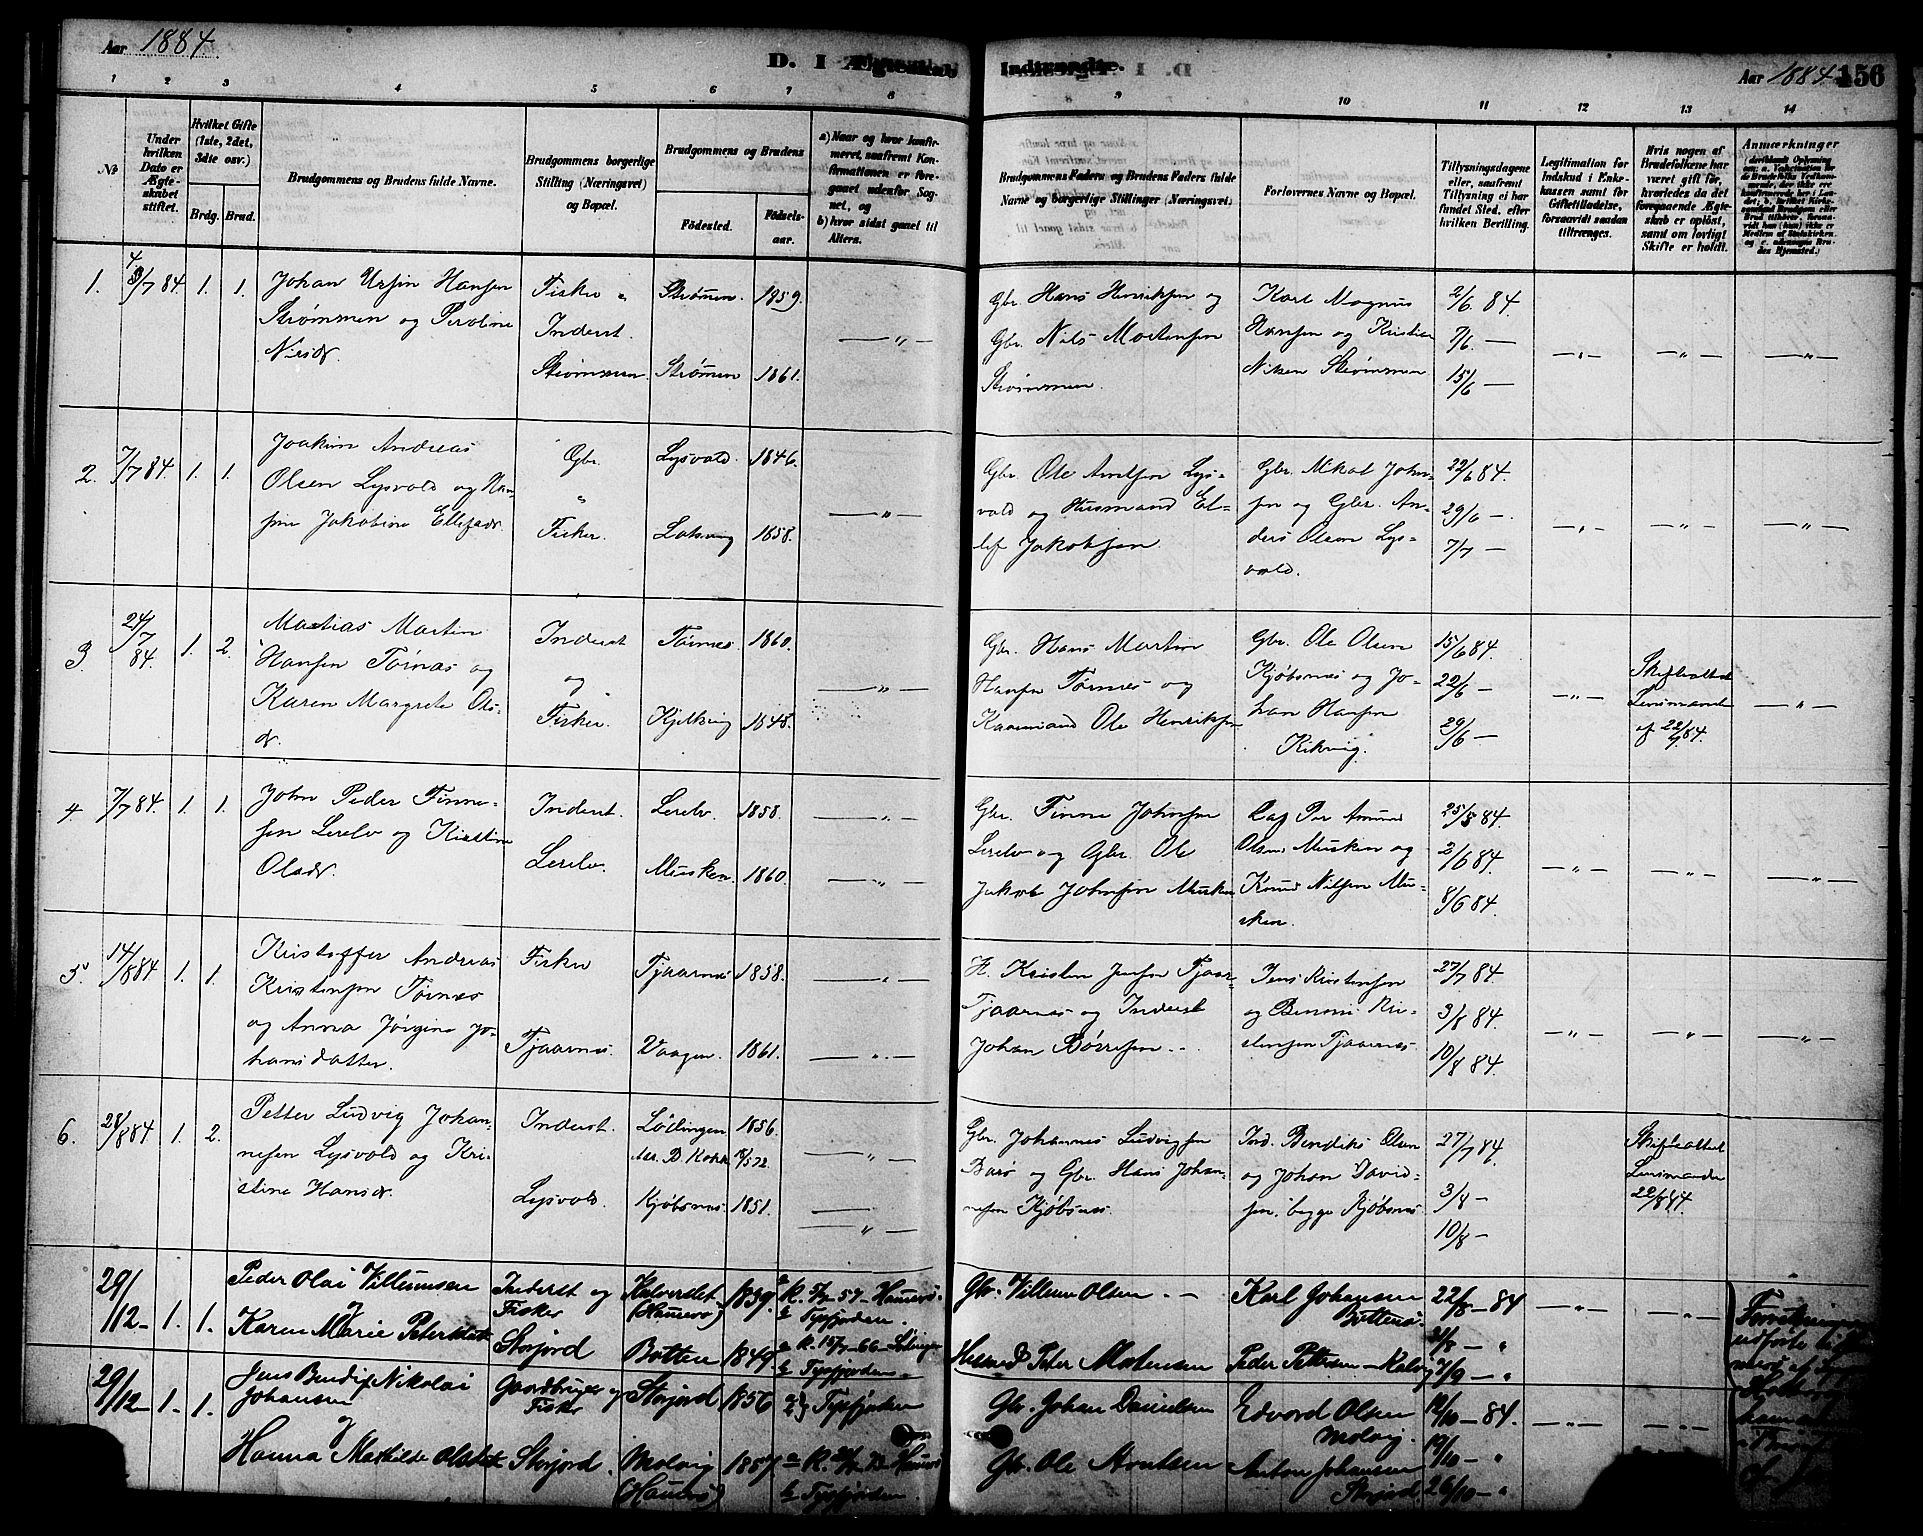 Aar 1884
D. I Ægteskab
Indtraadte.
Aar 1884
156
1 2 3 4 5 6 7 8 9 10 11 12 13 14
No
Under hvilken Dato er Ægteskabet stiftet.
Hvilket Gifte (1ste, 2det, 3die osv.)
Brdg. Brud.
Brudgommens og Brudens fulde Navne.
Brudgommens borgerlige Stilling (Næringsvei) og Bopæl.
Brudgommens og Brudens
Fødested.
Fødselsaar.
a) Naar og hvor konfirmeret, saafremt Konfirmationen er foregaaet udenfor Sognet, og
b) hvor sidst gaaet til Alters.
Brudgommens Faders og Brudens Faders fulde Navne og borgerlige Stillinger (Næringsvei).
Forlovernes Navne og Bopæl.
Tillysningsdagene eller, saafremt Tillysning ei har fundet Sted, efter hvilken Bevilling.
Legitimation for Indskud i Enkekassen samt for Giftetilladelse, forsaavidt saadan tiltrænges.
Hvis nogen af Brudefolkene har været gift før, hvorledes da det foregaaende Ægteskab er opløst, samt om lovligt Skifte er holdt.
Anmærkninger
1. 1. 1. Johan Ursin Hansen Fisker " Strømmen. 1859. Gbr. Hans Henriksen og Karl Magnus 2/6 84.
Strømmen og Peroline Inderst. Gbr. Nils Mortensen Hansen og Kristian 7/6 —
Nilsdr. Strømmen. Strømen 1861. —"— Strømmen. Nilsen Strømmen 15/6 — —"— —"— —"—
2. 7/7 84. 1. 1. Joakim Andreas Gbr. Lysvold. 1846. Gbr. Ole Arntsen Lys- Gbr. Nikol John- 22/6 84.
Olsen Lysvold og Han- " vold og Husmand El- sen og Gbr. An- 29/6 —
sine Jakobine Ellefsdr. Fisker. 1858. —"— lef Jakobsen. ders Olsen Lys- 7/7 — —"— —"— —"—
vold.
3. 24/7 84. 1. 2. Matias Martin Inderst Tørnes 1860. Gbr. Hans Martin Gbr. Ole Olsen 15/6 84.
Hansen Tørnæs og og Hansen Tørnes og Kjøbsnæs og Jo- 22/6 —
Karen Margrete Ols- Fisker. 1848. —"— Ole Henriksen han Hansen 29/6 — —"— Skifteattest Lensmanden af 22/7 84. —"—
dr. Kikvig.
4 7/7 84. 1. 1. John Peder Finne- Inderst. Lerelv. 1858. Gbr. Finne Johnsen Lap Per Amund 25/5 84.
sen Lerelv og Kirstine Lerelv. Lerelv og Gbr. Ole Olsen Musken og 2/6 84.
Olsdr. Musken. 1860. —"— Jakob Johnsen Musken Knud Nilsen Mu- 8/6 84. —"— —"— —"—
sken.
5. 14/8 84 1. 1. Kristoffer Andreas Fisker Tjaarnes 1858. H. Kristen Jensen Tjaar- Jens Kristensen 27/7 84.
Kristensen Tørnes Tjaarnes og Inderst og Benoni Kri- 3/8 84.
og Anna Jørgine Jo- Tjaarnes. Vaagen. 1861. —"— Johan Børresen. stensen Tjaarnes 10/8 84. —"— —"— —"—
hansdatter.
6. 28/8 84 1. 2. Petter Ludvig Johan- Inderst. Lødingen 1856. Gbr. Johannes Ludvigsen Ind. Bendiks Olsen 27/7 84.
nesen Lysvold og Kri- Barø og Gbr. Hans Johan- og Johan David- 3/8 —
stine Hansdr. Lysvold. Kjøbsnæs. 1851. —"— nesen Kjøbsnæs sen, begge Kjøbsnæs 10/8 — —"— Skifteattest Lensmanden 22/8 84. —"—
29/12 — 1. 1. Peder Olai Villumsen Inderst og Fisker Kalverslet (Hamerø) 1839. a K. 57. Hamerø. b Tysfjorden. Gbr. Villum Olsen. — Karl Johansen Botten. 22/8 — 84
og
Karen Marie Petersdatter Storjord Botten 1849. a K. 15/7 — 66 — b Tysfjorden. Husmd Peter Mortensen Peder Pettersen — 31/8 — " 7/9 — " —"— —"—
29/12 — 1. 1. Jens Bendix Nikolai Johansen Gaardbruger og Fisker Storjord 1856 a b} Tysfjorden Gbr. Johan Danielsen Edvard Olsen Molvig. 12/10 — 84.
og
Hanna Mathilde Olsdatter Storjord. Molvig (Hamerø) 1857 a K. Hamerø b Tysfjorden. Gbr. Ole Arntsen Anton Johansen Storjord. 19/10 — " 26/10 — " —"— —"—